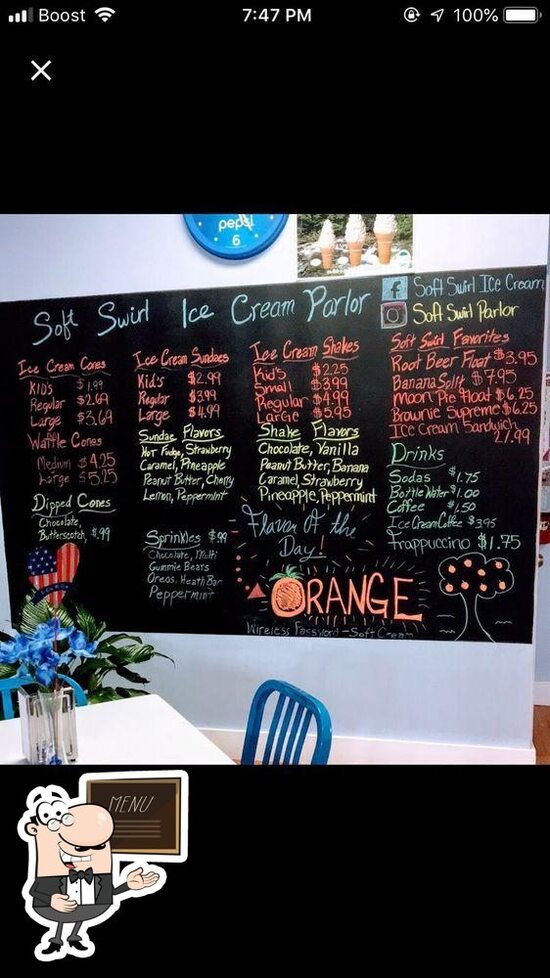 Boost
7:47 PM
100%
pepsi
6
Soft Swirl Ice Cream Parlor
Soft Swirl Ice Cream
Soft Swirl Parlor
Ice Cream Cones
Kid's $1.99
Regular $2.69
Large $3.69
Waffle Cones
Medium $4.25
Large $5.25
Dipped Cones
Chocolate,
Butterscotch, $.99
Ice Cream Sundaes
Kid's $2.99
Regular $3.99
Large $4.99
Sundae Flavors
Hot Fudge, Strawberry
Caramel, Pineapple
Peanut Butter, Cherry
Lemon, Peppermint
Sprinkles $.99
Chocolate, Multi
Gummie Bears
Oreos, Heath Bar
Peppermint
Ice Cream Shakes
Kid's $2.25
Small $3.99
Regular $4.99
Large $5.95
Shake Flavors
Chocolate, Vanilla
Peanut Butter, Banana
Caramel, Strawberry
Pineapple, Peppermint
Flavor Of the
Day!
ORANGE
Wireless Password - Soft
Soft Swirl Favorites
Root Beer Float $3.95
Banana Split $7.95
Moon Pie Float $6.25
Brownie Supreme $6.25
Ice Cream Sandwich
Drinks
Sodas $1.75
Bottle Water $1.00
Coffee $1.50
Ice Cream Coffee $3.95
Frappuccino $1.75
MENU